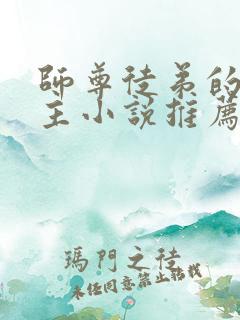 師尊徒弟的
主小說推薦
瑪門之徒
未任同意禁止轉載